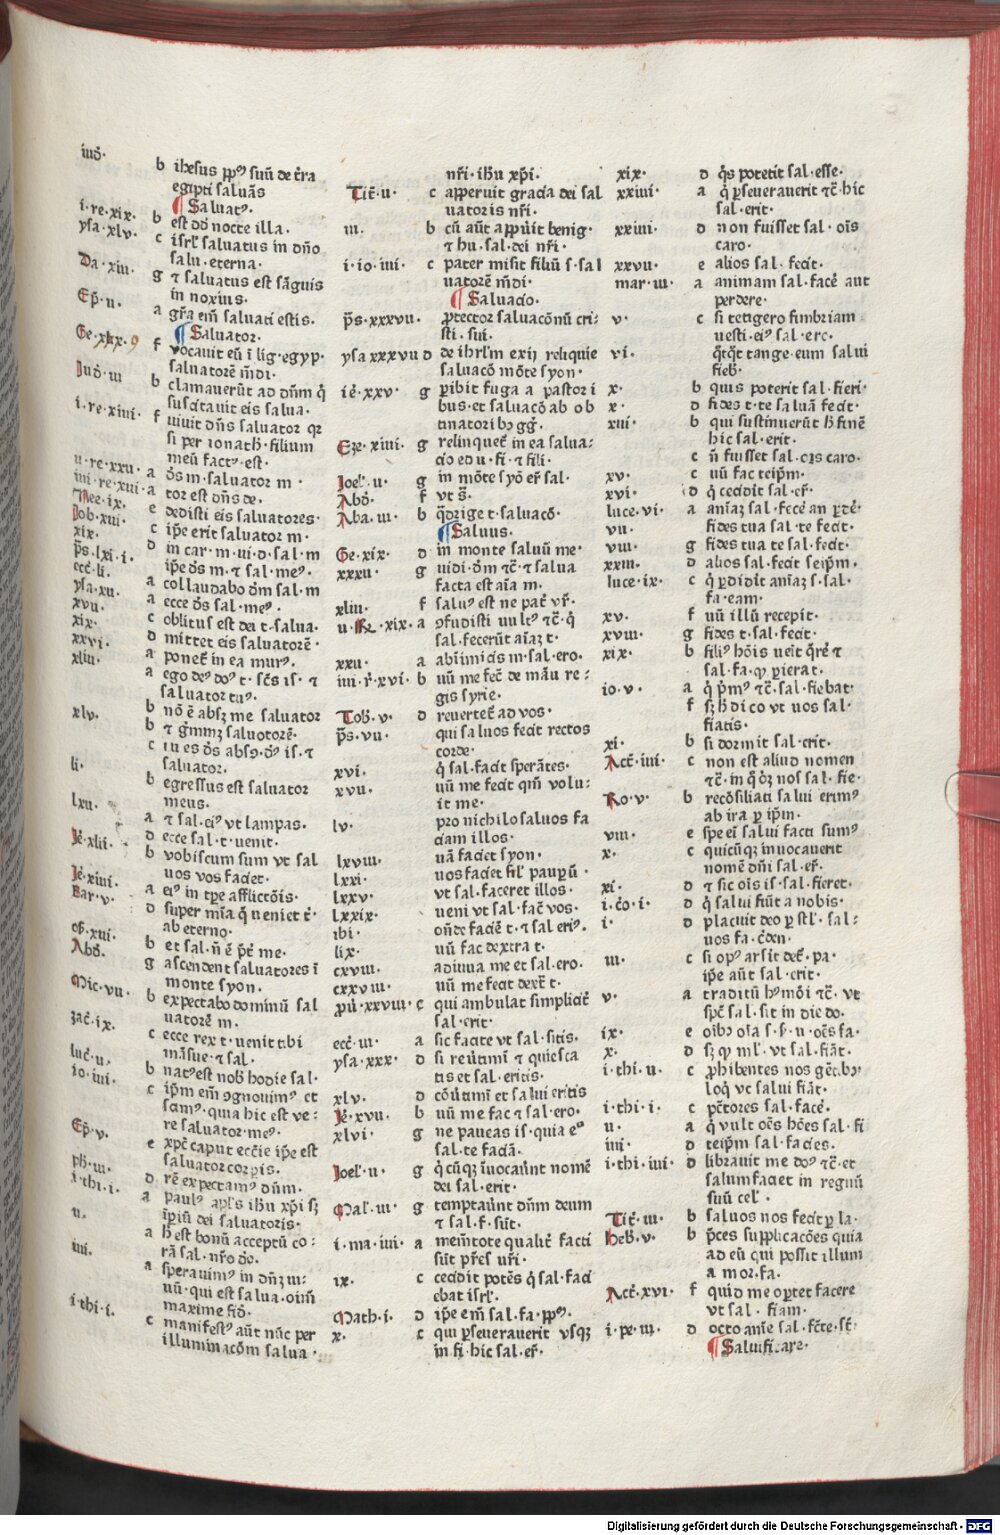 iud̄· b ihesus ꝓpꝰ suū de t̄ra
egipti saluās
¶ Saluatꝰ·
i·re·xix· b est dō nocte illa·
ysa·xlv· c isrl̄ saluatus in dn̄o
salu·eterna·
Da·xiii· g ⁊ saluatus est sāguis
in noxius·
Ep̄·ii· a gr̄a em̄ saluati estis·
¶ Saluator·
Ge·xlix·9 f vocauit eū ī lig·egyp·
saluatorē m̄di·
Iud̄·iii b clamauerūt ad dn̄m q̄
suscitauit eis salua·
i·re·xiiii· f uiuit dn̄s saluator qꝛ
si per ionath̄·filium
meū factꝰ·est·
ii·re·xxii· a d̄s m·saluator m·
iiii·re·xiii·a tor est dn̄s de·
Nee·ix· e dedisti eis saluatores·
Iob·xiii· c ip̄e erit saluator m·
xix· d in car·m·ui·d·sal·m
p̄s·lxi·i· ip̄e d̄s m·⁊ sal·meꝰ·
ecc̄·li· a collaudabo d̄m sal·m
ysa·xii· a ecce d̄s sal·meꝰ·
xvii· c oblitus est dei t·salua·
xix· d mittet eis saluatorē·
xxvi· a ponet̄ in ea murꝰ·
xliii· a ego deꝰ doꝰ t·sc̄s is·⁊
saluator tuꝰ·
b nō ē absꝫ me saluator
xlv· b ⁊ ḡmmꝫ saluatorē·
c tu es d̄s absꝯ·dꝰ is·⁊
saluator·
li· b egressus est saluator
meus·
lxii· a ⁊ sal·eiꝰ vt lampas·
d ecce sal·t·uenit·
Ie·xlii· b vobiscum sum vt sal
uos vos faciet·
Ie·xiiii· a eiꝰ in tꝑe afflictōis·
Bar·v· d super mīa q̄ ueniet t̄·
ab eterno·
eſ̄·xiii· b et sal·n̄ ē p̄t me·
Abd̄· g ascendent saluatores ī
monte syon·
Mic·vii· b expectabo dominū sal
uatorē m·
zac̄·ix· c ecce rex t·uenit tibi
māsue·⁊ sal·
luc̄·ii· b natꝰest nob̄ hodie sal·
io·iiii· c ip̄m em̄ ꝯgnouimꝰ et
scimꝰ·quia hic est ve:
re saluator·meꝰ·
Ep̄·v· e xp̄c caput ecc̄ie ip̄e est
saluator corꝑis·
ph̄·iii· d rē expectamꝰ dūm·
i·thi·i· a paulꝰ apl̄s ih̄u xp̄i sꝫ
īperiū dei saluatoris·
ii· a h̄ est bonū acceptū co:
rā sal·nr̄o de·
iiii· a sperauimꝰ in dn̄ꝫ ui:
uū·qui est salua·oim̄
maxime fid̄·
i·thi·i· c manifestꝰ aūt nūc per
illuminacōm salua·
nr̄i·ih̄u xp̄i·
Tit̄·ii· c apperuit gracia dei sal
uatoris nr̄i·
iii· b cū aūt appuit benig·
⁊ hu·sal·dei nr̄i·
i·io·iiii· c pater misit filiū s·sal
uatorē m̄di·
¶ Saluacio·
p̄s·xxxvii· ꝓtector saluacōnū cri:
sti·sui·
ysa xxxvii d de ihrl̄m exij reliquie
saluacō mōte syon·
ie̅·xxv· g ꝑibit fuga a pastori
bus·et saluacō ab ob
tinatoribꝫ gḡ·
Eze·xiiii· g relinquet̄ in ea salua:
cio edu·fi·⁊ fili·
Ioel̄·ii· g in mōte syō er̄ sal·
Abd̄· f vt s̄·
Aba·iii· b q̄drige t·saluacō·
¶ Saluus·
Ge·xix· d in monte saluū me·
xxxii· g uidi·d̄m ⁊c̄·⁊ salua
facta est aīa m·
xliii· f saluꝰ est ne pat̄ vr̄·
ii·Re·xix· a ꝯfudisti uultꝰ ⁊c̄·q̄
sal·fecerūt aīaꝫ t·
xxii· a ab īmicis m·sal·ero·
iiii·r̄·xvi· b uū me fec̄ de māu re:
gis syrie·
Tob̄·v· d reuertet̄ ad vos·
p̄s·vii· qui saluos fecit rectos
corde·
xvi· q̄ sal·facit sperātes·
xvii· uū me fecit qm̄ volu·
it me·
lv· pro nichilo saluos fa
ciam illos·
lxviii· uā faciet syon·
lxxi· uos faciet fil̄ pauꝑū·
lxxv· vt sal·faceret illos·
lxxix· ueni vt sal·fac̄ vos·
ibi· on̄de faciē t·⁊ sal eriꝰ·
lix· uū fac dextra t·
cxviii· adiuua me et sal·ero·
cxxviii· uū me fecit dext̄ t·
ꝓu̅·xxviii· c qui ambulat simplicit̄
sal·erit·
ecc̄·iii· a sic facite vt sal·sitis·
ysa·xxx· d si reūtimī ⁊ quiesca
tis et sal·eritis·
xlv· d cōūtimī et salui eritis
Ie̅·xvii· b uū me fac ⁊ sal·ero·
xlvi· g ne paueas is·quia eᵒ
sal·te faciā·
Ioel·ii· g q̄cūqꝫ īuocaūnt nomē
dei sal·erit·
Mal̄·iii· g temptaūnt dūm deum
⁊ sal·f·sūt·
i·ma·iiii· a mem̄tote qualit̄ facti
sūt pr̄es ur̄i·
ix· c cecidit potēs q̄ sal·faci
ebat isrl̄·
Math·i· d ip̄e em̄ sal·fa·ꝓpꝰ·
x· c qui ꝑseuerauerit vsqꝫ
in fi·hic sal·er̄·
xix· d q̄s potetit sal·esse·
xxiiii· a q̄ ꝑseuerauerit ⁊c̄·hic
sal·erit·
xxiiii· d non fuisset sal·oīs
caro·
xxvii· e alios sal·fecit·
mar·iii· a animam sal·facē aut
perdere·
v· c si tetigero fimbriam
uesti·eiꝰ sal·ero·
vi· q̄tq̄t tange·eum salui
fieb̄·
x· b quis poterit sal·fieri·
x· d fides t·te saluā fecit·
xiii· b qui sustinuerūt h̄ finē
hic sal·erit·
c n̄ fuisset sal·oīs caro·
xv· c uū fac teip̄m·
xvi· d q̄ crediđit sal·er̄·
luce·vi· a aniāꝫ sal·fece an ꝑdē·
vii· fides tua sal·te fecit·
viii· g fides tua te sal·fecit·
xxiii· d alios sal·fecit seip̄m·
luce·ix· c q̄ ꝑdidit aniāꝫ s·sal·
fa·eam·
xv· f uū illū recepit·
xviii· g fides t·sal·fecit·
xix· b filiꝰ hōis ueīt q̄rē ⁊
sal·fa·qꝫ ꝑierat·
io·v· a q̄ p̄mꝰ ⁊c̄·sal·fiebat·
f sꝫ h̄ dico vt uos sal·
fiatis·
xi· b si dormit sal·erit·
Act̄·iiii· c non est aliud nomen
⁊c̄·in q̄ oꝫ nos sal·fie·
Ro·v· b recōsiliati salui erimꝰ
ab ira ꝑ ip̄m·
viii· e spe eī salui facti sumꝰ
x· c quicūqꝫ inuocauerit
nomē dn̄i sal·er̄·
xi· d ⁊ sic oīs is·sal·fieret·
i·c̄o·i· d q̄ salui fiūt a nobis·
i· d placuit deo ꝑ stl̄·sal:
uos fa·c̄den·
iii· c si opꝰ arsit det̄·pa·
ip̄e aūt sal·erit·
v· a traditū hꝰmōi ⁊c̄·vt
sp̄c sal·sit in die do·
ix· e oībꝫ oīa s·f·u·oēs fa·
x· d sꝫ qꝫ ml̄·vt sal·fiāt·
i·thi·ii· c ꝓhibentes nos gēt·bꝫ
loq̄ vt salui fiāt·
i·thi·i· c pc̄tores sal·facē·
ii· a q̄ vult oēs hōes sal·fi
iiii· d teip̄m sal·facies·
i·thi·iiii· d librauit me doꝰ ⁊c̄·et
saluum faciet in regnū
suū cel̄·
Tit̄·iii· b saluos nos fecit ꝑ la·
heb̄·v· b p̄ces supplicacōes quia
ad eū qui possit illum
a mor·fa·
Act̄·xvi· f quid me oꝑtet facere
vt sal·fiam·
i·pe·iii· d octo anīe sal·fc̄te·st̄·
¶ Saluificare·
Digitalisierung gefördert durch die Deutsche Forschungsgemeinschaft - DFG